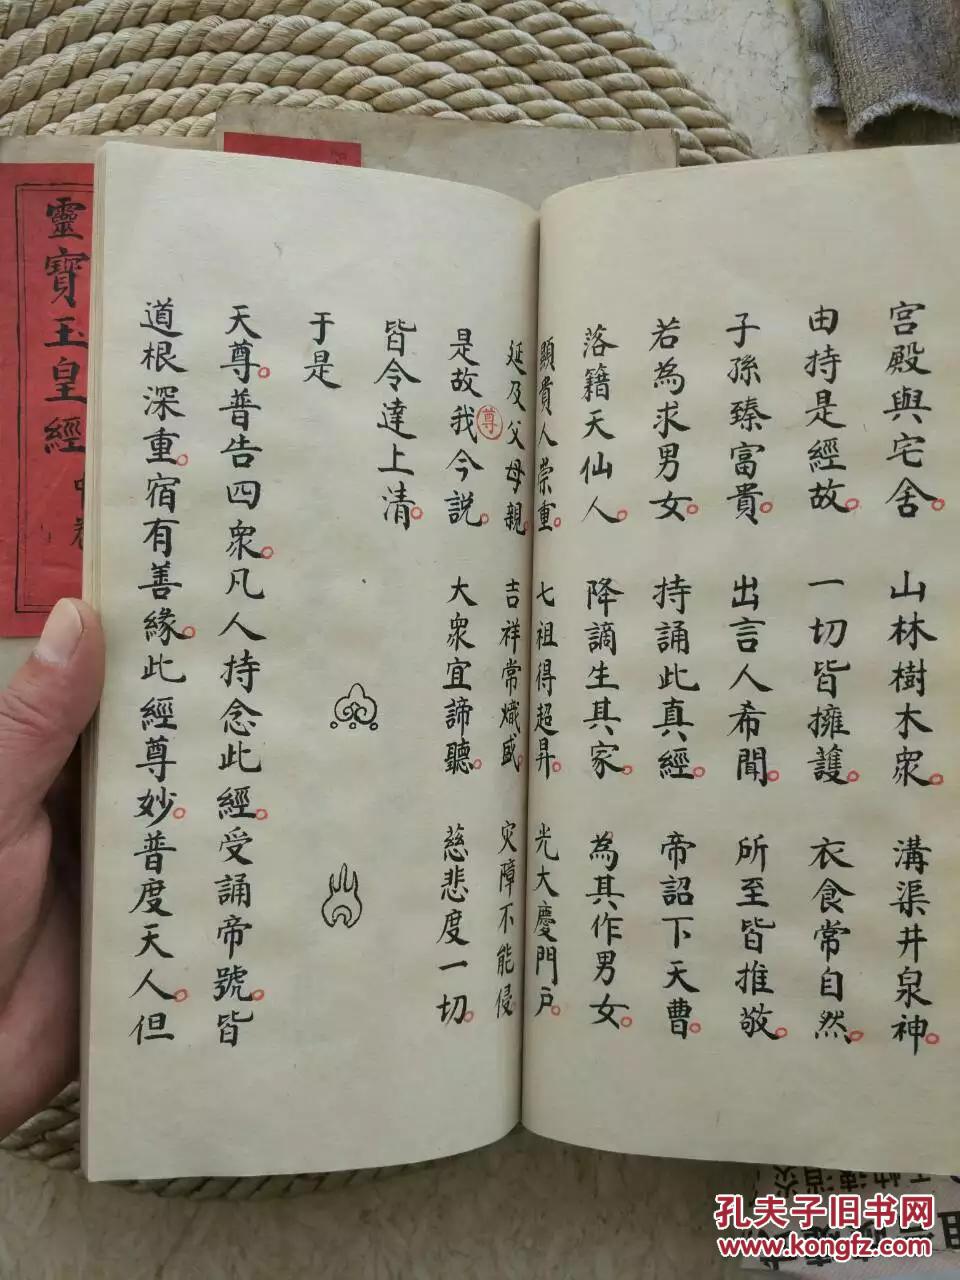 宮殿與宅舍。 山林樹木衆。 溝渠井泉神。
由持是經故。 一切皆擁護。 衣食常自然。
子孫臻富貴。 出言人希聞。 所至皆推敬。
若為求男女。 持誦此真經。 帝詔下天曹。
落籍天仙人。 降謫生其家。 為其作男女。
顯貴人崇重。 七祖得超昇。 光大慶門戸。
延及父母親。 吉祥常熾盛。 灾障不能侵。
是故我今説。 大衆宜諦聽。 慈悲度一切。
尊
皆令達上清。
于是
天尊。普告四衆。凡人持念此經。受誦帝號。皆
道根深重。宿有善緣。此經尊妙。普度天人。但
靈寶玉皇經
孔夫子旧书网
www.kongfz.com